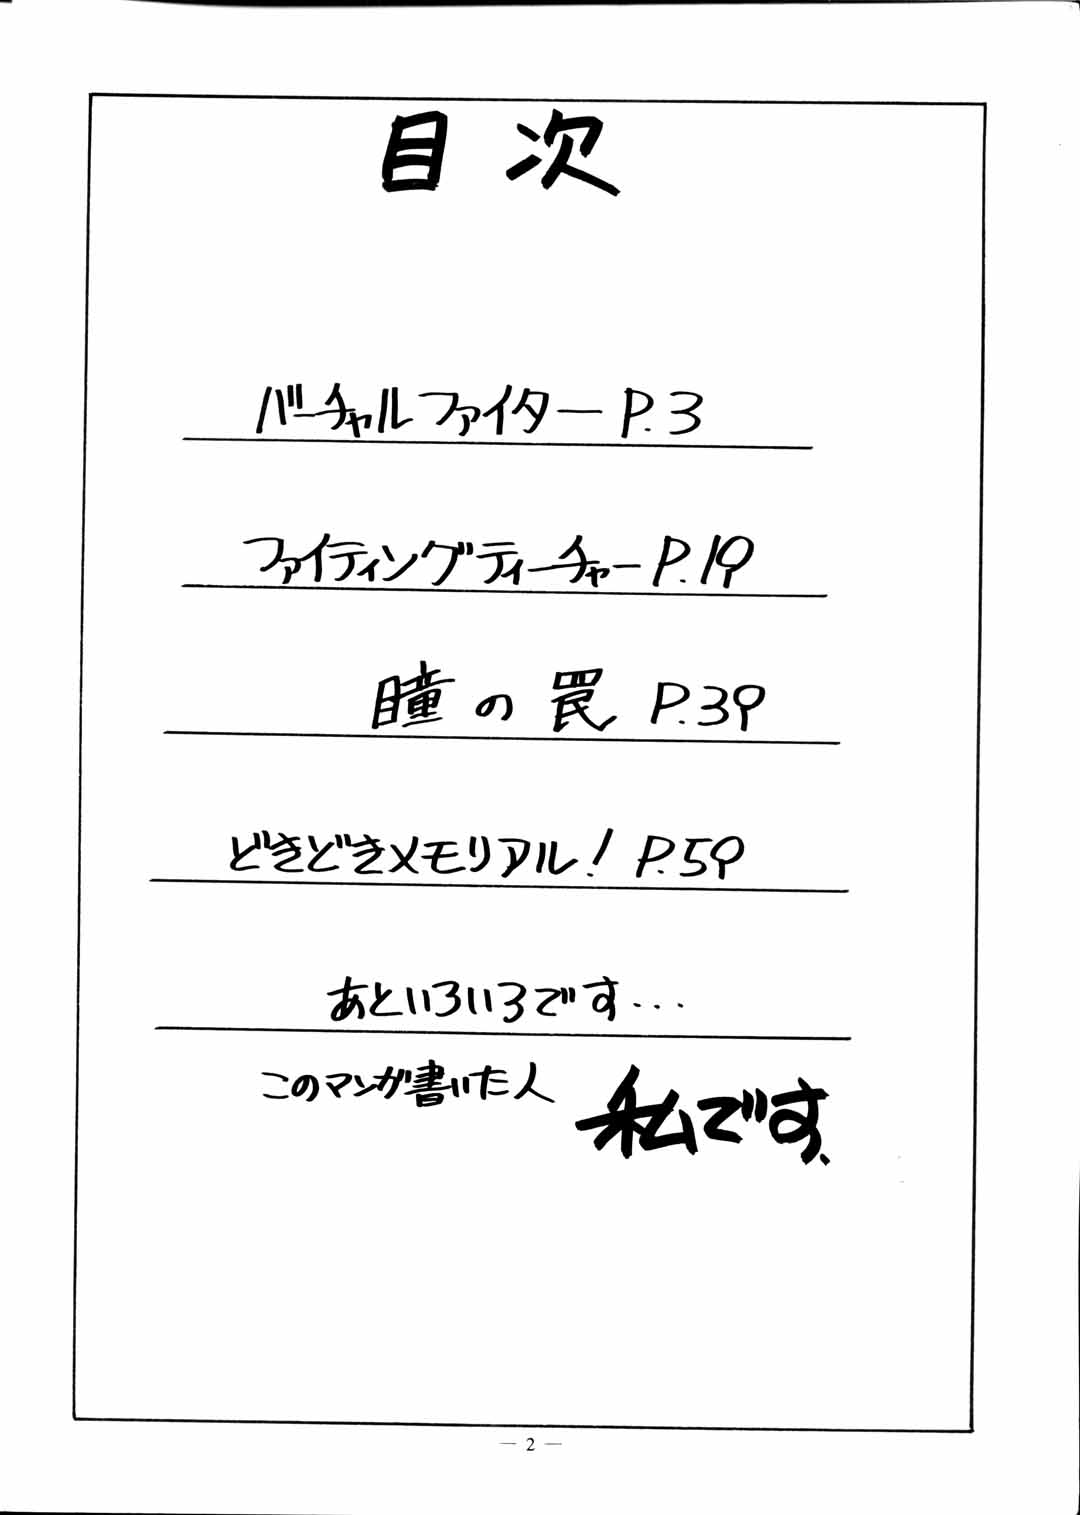 目次
バーチャルファイターP.3
ファイティングティーチャーP.19
瞳の罠 P.39
どきどきメモリアル! P.59
あといろいろです...
このマンガ書いた人 私です、
— 2 —